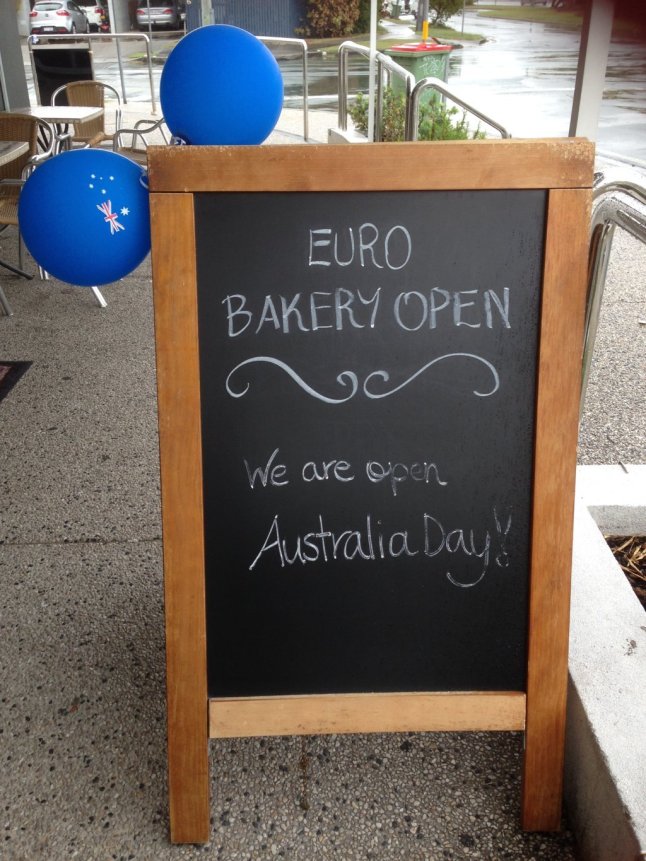 EURO
BAKERY OPEN
We are open
Australia Day!